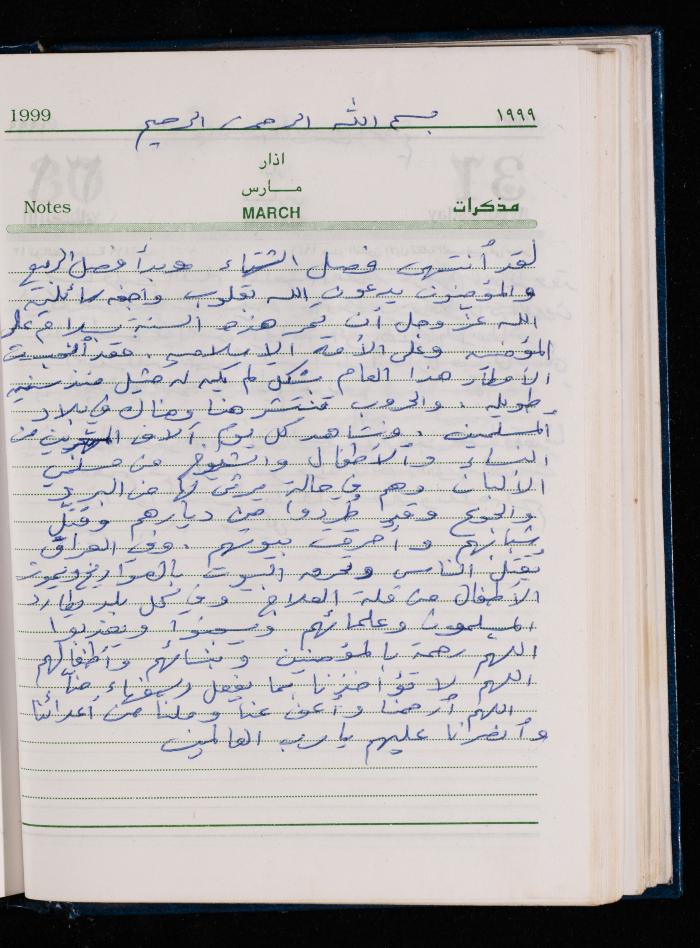 1999 بسم الله الرحمن الرحيم ١٩٩٩
اذار
مارس
Notes MARCH مذكرات
لقد أنتهى فصل الشتاء وبدأ فصل الربيع
والمؤمنون يدعون الله بقلوب واجفه سائلين
الله عز وجل أن تمر هذه السنة بسلام على
المؤمنين وعلى الأمة الإسلامية . فقد أنحبست
الأمطار هذا العام بشكل لم يكن له مثيل منذ سنين
طويله . والحروب تنتشر هنا وهناك في بلاد
المسلمين . ونشاهد كل يوم آلاف المشردين من
النساء والأطفال والشيوخ من مسلمي
الألبان وهم في حالة يرثى لها من البرد
والجوع وقد طُردوا من ديارهم وقتل
شبانهم وأحرقت بيوتهم . وفي العراق
يُقتل الناس وتحرق البيوت بالصواريخ ويموت
الأطفال من قلة العلاج وفي كل بلد يطارد
المسلمون وعلمائهم ويسجنوا ويعذبوا
اللهم رحمة بالمؤمنين ونسائهم وأطفالهم
اللهم لا تؤاخذنا بما يفعل السفهاء منّا
اللهم أرحمنا وأعف عنا وملنا من أعدائنا
وأنصرنا عليهم يا رب العالمين